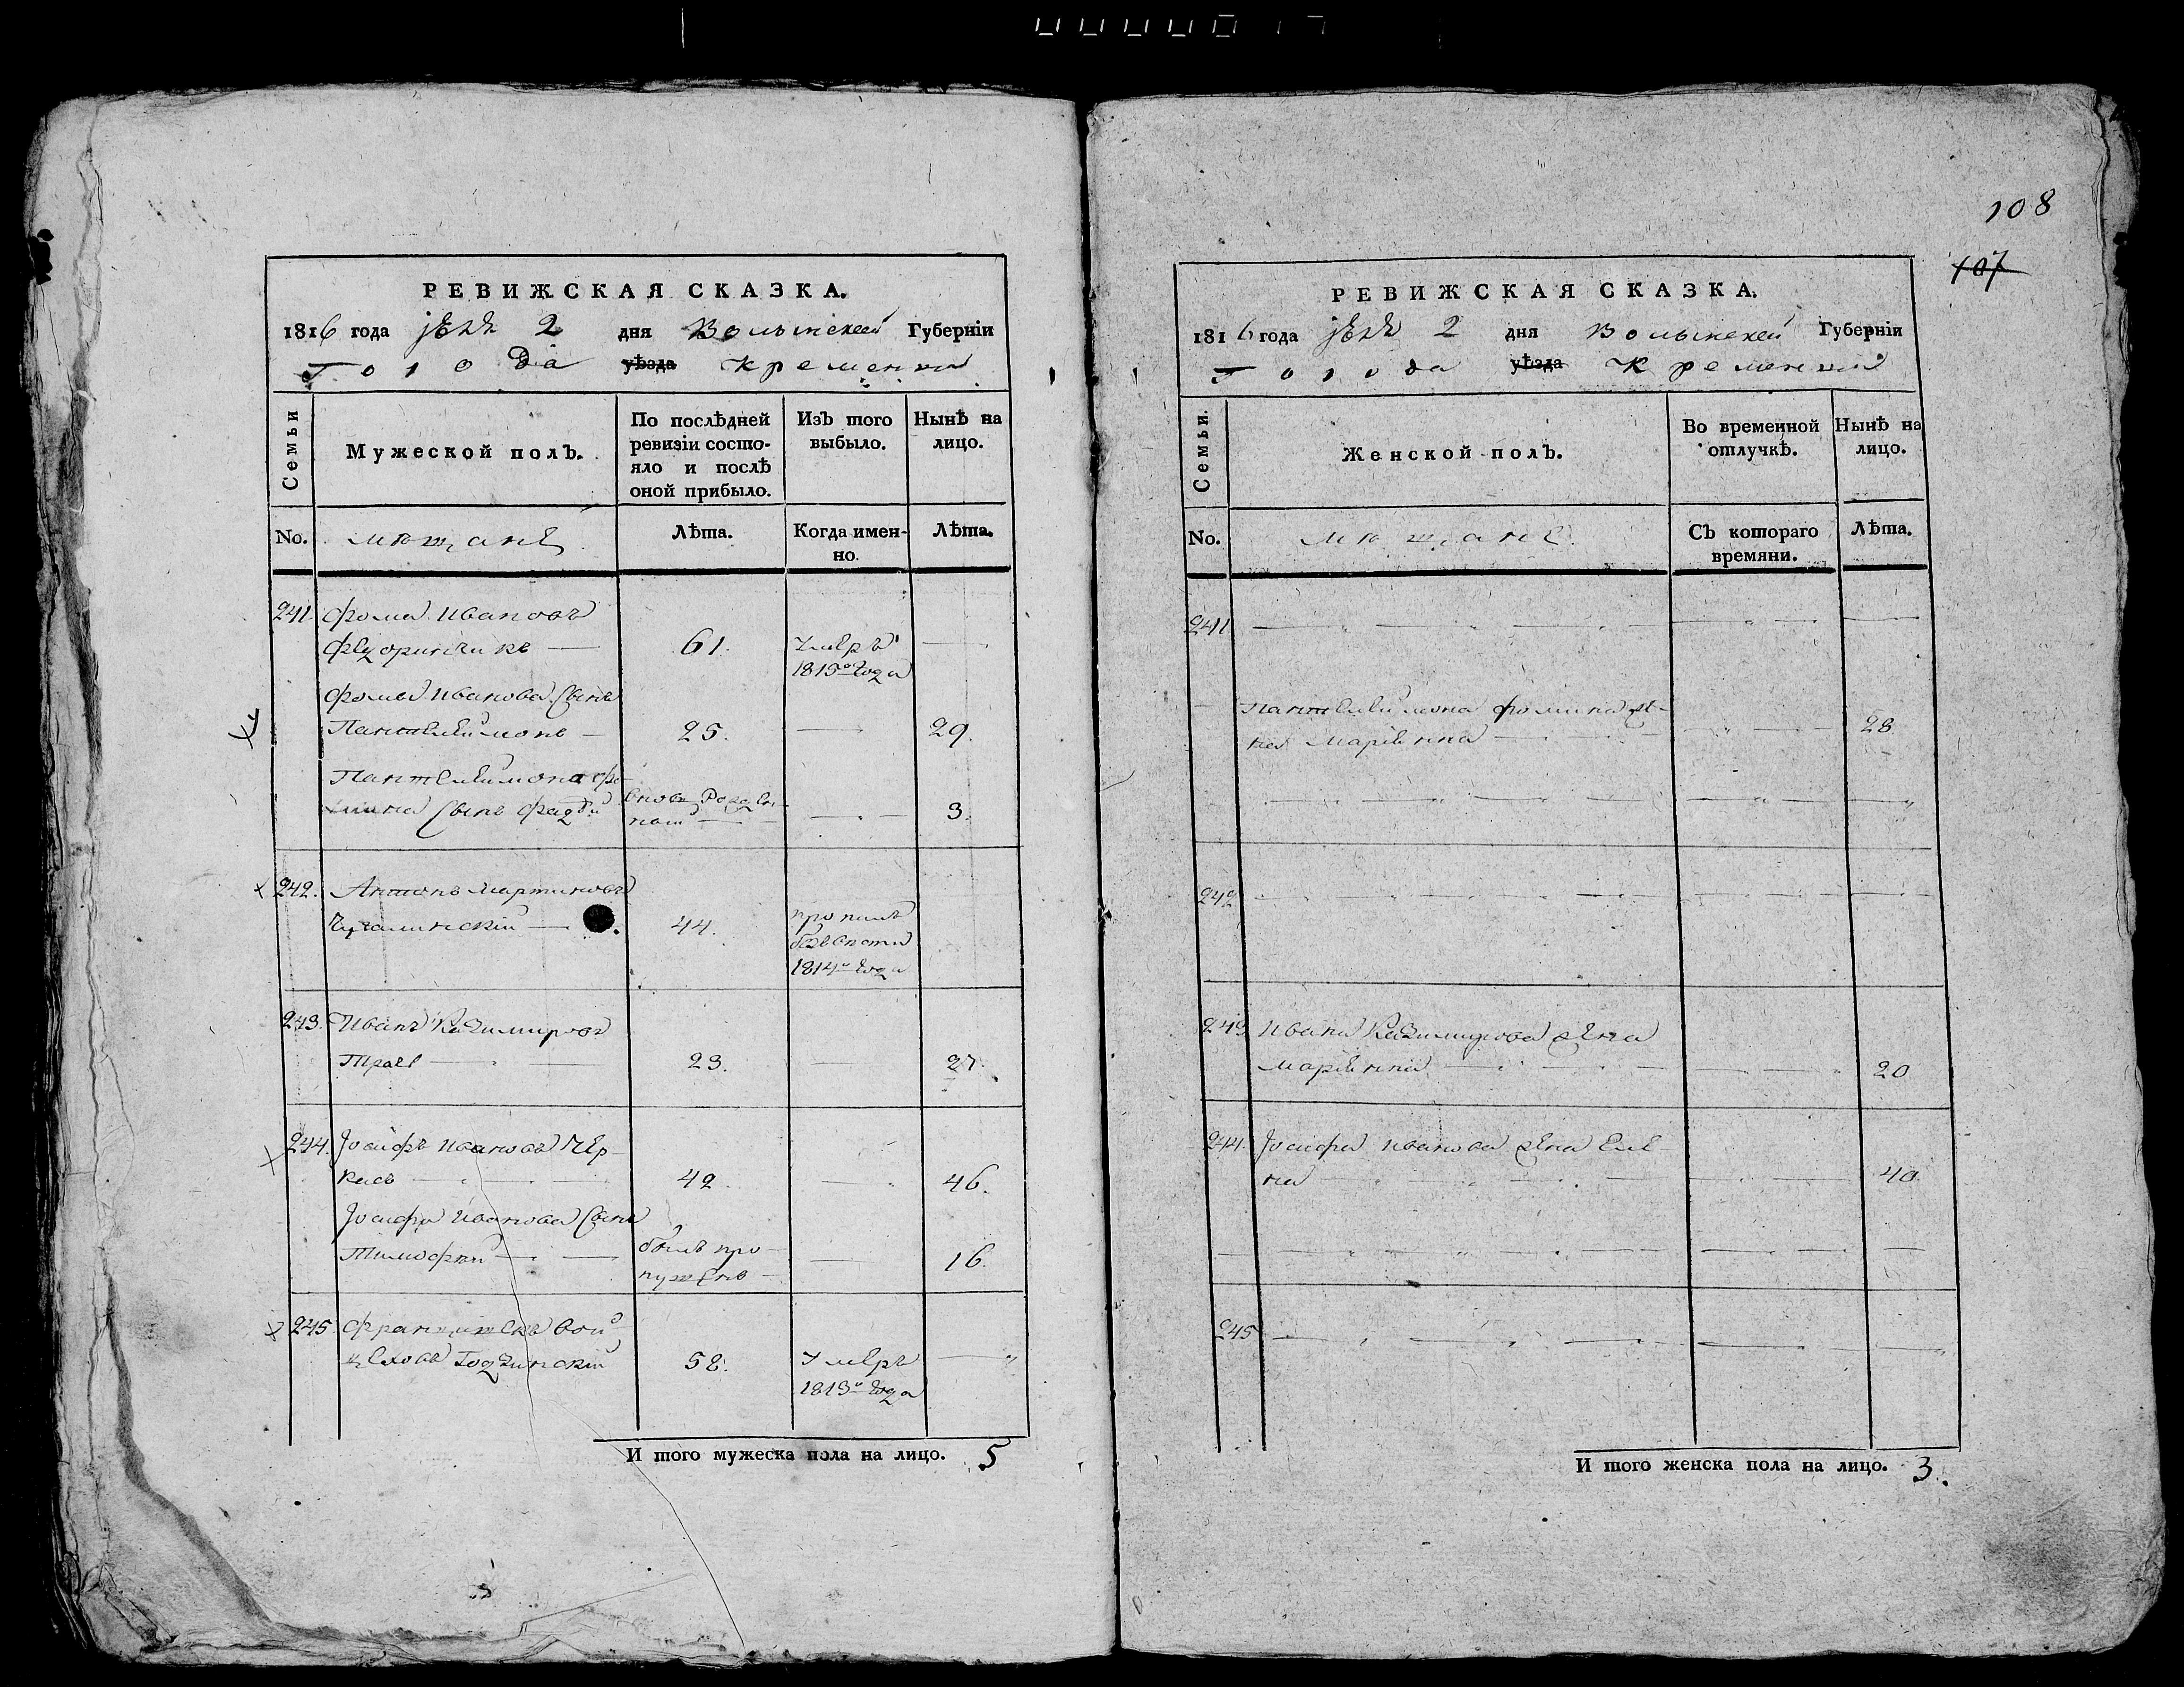 108
107
РЕВИЖСКАЯ СКАЗКА.
1816 года 2 дня Волынской Губерніи
Города уѣзда Кременца
Семьи
Мужеской полъ.
По послѣдней ревизіи состо-
яло и послѣ оной прибыло.
Изъ того выбыло.
Нынѣ на лицо.
No. мещане Лѣта. Когда имен-
но. Лѣта.
241. Фома Ивановъ
61. Умеръ
1815го года
Фомы Иванова сынъ
Пантелеймонъ 25. 29.
Пантелеймона Фо-
мина сынъ Фадѣй вновь рожден-
ный 3.
242. Антонъ Мартиновъ
44. пропалъ
безвести
1814го года
243. Иванъ Казимировъ
23. 27.
244. Іосифъ Ивановъ Чер-
касъ 42. 46.
Іосифа Иванова сынъ
Тимофей былъ про-
пущенъ 16.
245. Францишекъ Вой-
цеховъ Годзинскій 58. Умеръ
1813го года
И того мужеска пола на лицо. 5
РЕВИЖСКАЯ СКАЗКА.
1816 года 2 дня Волынской Губерніи
Города уѣзда Кременца
Семьи.
Женской полъ.
Во временной отлучкѣ.
Нынѣ на лицо.
No. мещане Съ котораго
времяни. Лѣта.
241
Пантелеймона Фомина же-
на Маріянна 28
242
243 Ивана Казимирова жена
Маріянна 20
244. Іосифа Иванова жена Еле-
на 40
245
И того женска пола на лицо. 3.